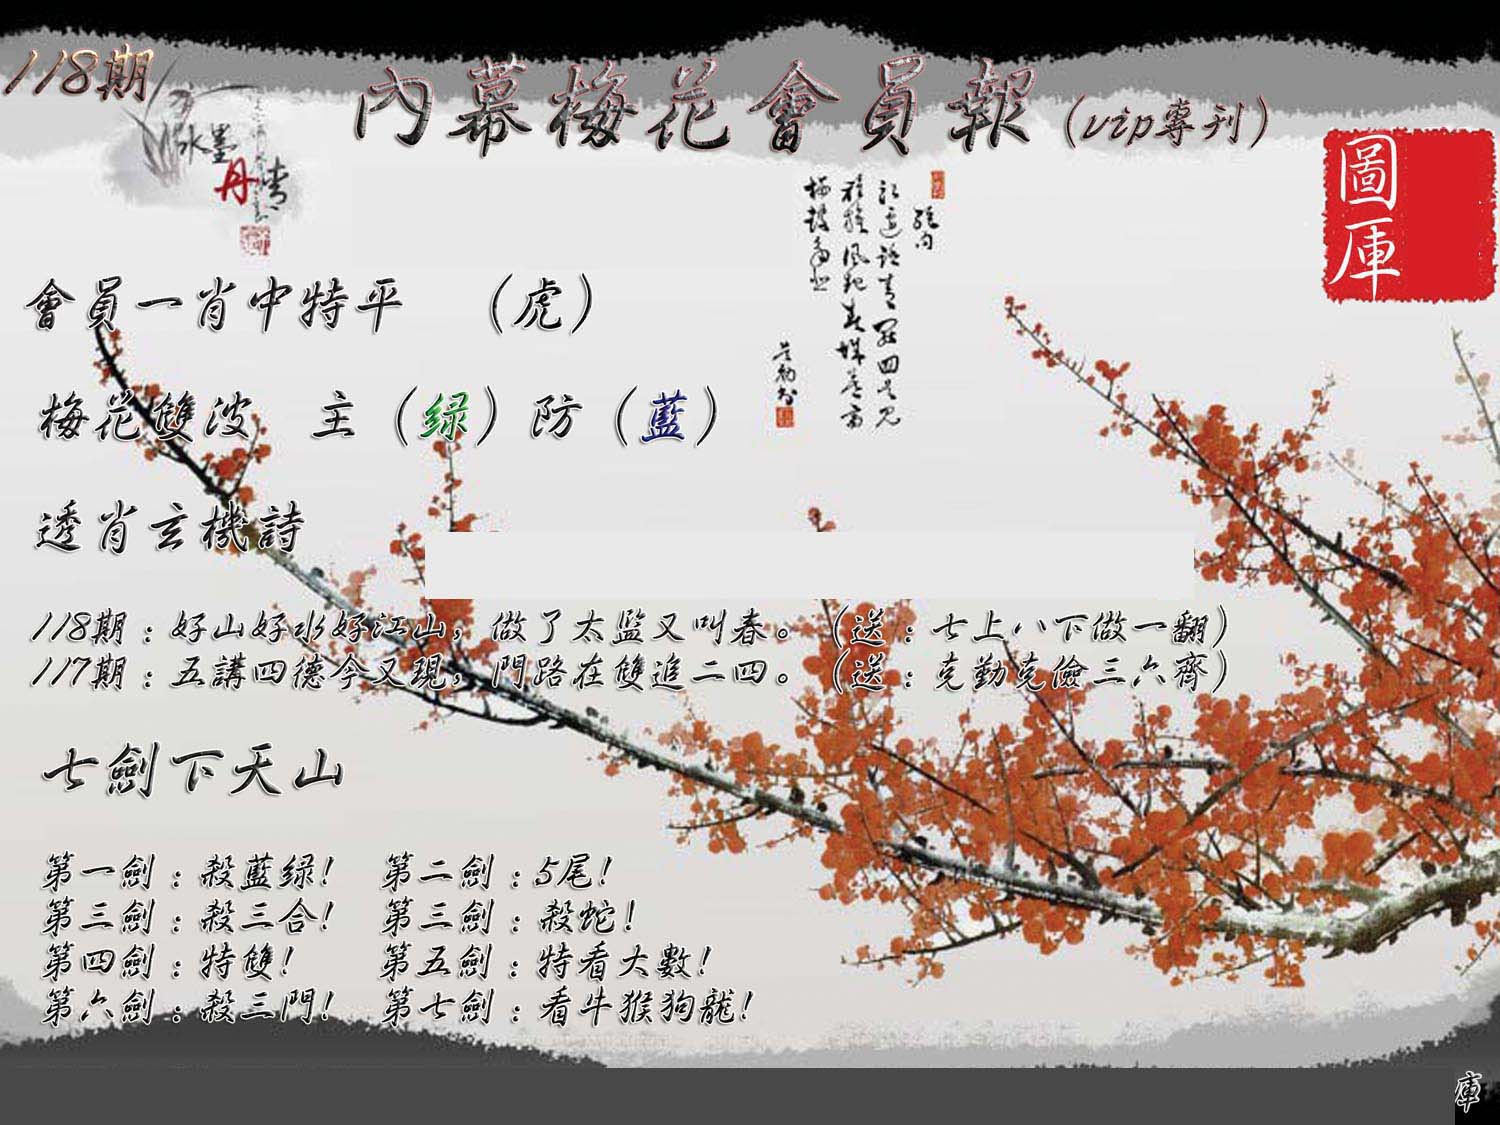 118期
內幕梅花會員報(vip專刊)
水墨
丹青
圖庫
會員一肖中特平 (虎)
梅花雙波 主(绿)防(藍)
透肖玄機詩
118期:好山好水好江山,做了太監又叫春。(送:七上八下做一翻)
117期:五講四德今又現,門路在雙追二四。(送:克勤克儉三六齊)
七劍下天山
第一劍:殺藍绿! 第二劍:5尾!
第三劍:殺三合! 第三劍:殺蛇!
第四劍:特雙! 第五劍:特看大數!
第六劍:殺三門! 第七劍:看牛猴狗龍!
庫